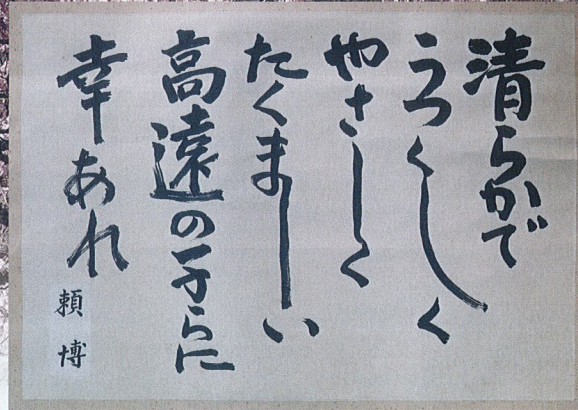 清らかで
うつくしく
やさしく
たくましい
高遠の子らに
幸あれ
頼博